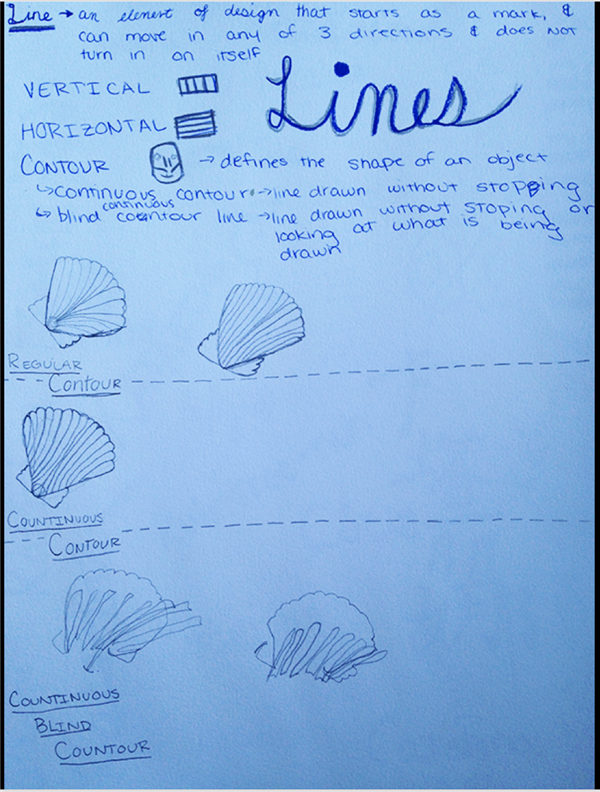 Line → an element of design that starts as a mark, &
can move in any of 3 directions & does NOT
turn in on itself
VERTICAL
Lines
HORIZONTAL
CONTOUR → defines the shape of an object
↳ continuous contour → line drawn without stopping
continuous
↳ blind contour line → line drawn without stoping or
looking at what is being
drawn
REGULAR
CONTOUR
COUNTINUOUS
CONTOUR
COUNTINUOUS
BLIND
COUNTOUR